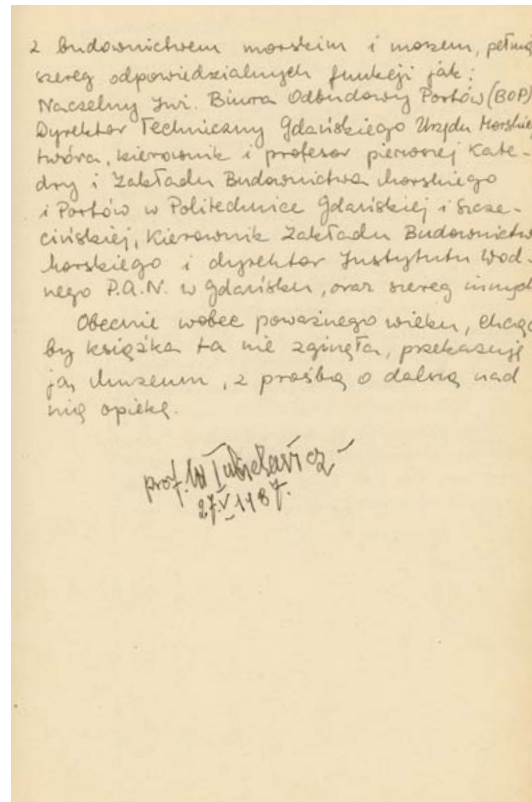 z budownictwem morskim i morzem, pełniąc
szereg odpowiedzialnych funkcji jak:
Naczelny Inż. Biura Odbudowy Portów (BOP)
Dyrektor Techniczny Gdańskiego Urzędu Morskie
twórca, kierownik i profesor pierwszej Kate-
dry i Zakładu Budownictwa Morskiego
i Portów w Politechnice Gdańskiej i Szcze-
cińskiej, Kierownik Zakładu Budownictw
Morskiego i dyrektor Instytutu Wod-
nego P.A.N. w Gdańsku, oraz szereg innych
Obecnie wobec poważnego wieku, chcąc
by książka ta nie zginęła, przekazuję
ją Muzeum, z prośbą o dalszą nad
nią opiekę.
prof. W Tubielewicz
27.V.1987.